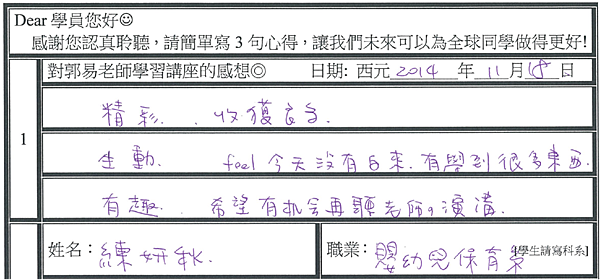 Dear 學員您好☺
感謝您認真聆聽，請簡單寫 3 句心得，讓我們未來可以為全球同學做得更好!
對郭易老師學習講座的感想◎ 日期: 西元 2014 年 11 月 18 日
1
精彩. 收獲良多.
生動. feel 今天沒有白來. 有學到很多東西.
有趣. 希望有机会再聽老師的演講.
姓名：練妍秋. 職業：嬰幼兒保育系 [學生請寫科系]